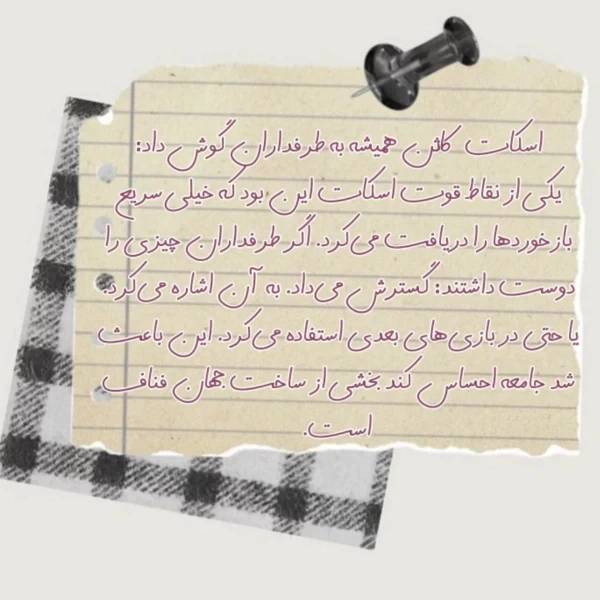 اسکات کاثن همیشه به طرفداران گوش داد:
یکی از نقاط قوت اسکات این بود که خیلی سریع
بازخوردها را دریافت می‌کرد. اگر طرفداران چیزی را
دوست داشتند: گسترش می‌داد. به آن اشاره می‌کرد.
یا حتی در بازی‌های بعدی استفاده می‌کرد. این باعث
شد جامعه احساس کند بخشی از ساخت جهان فناف
است.